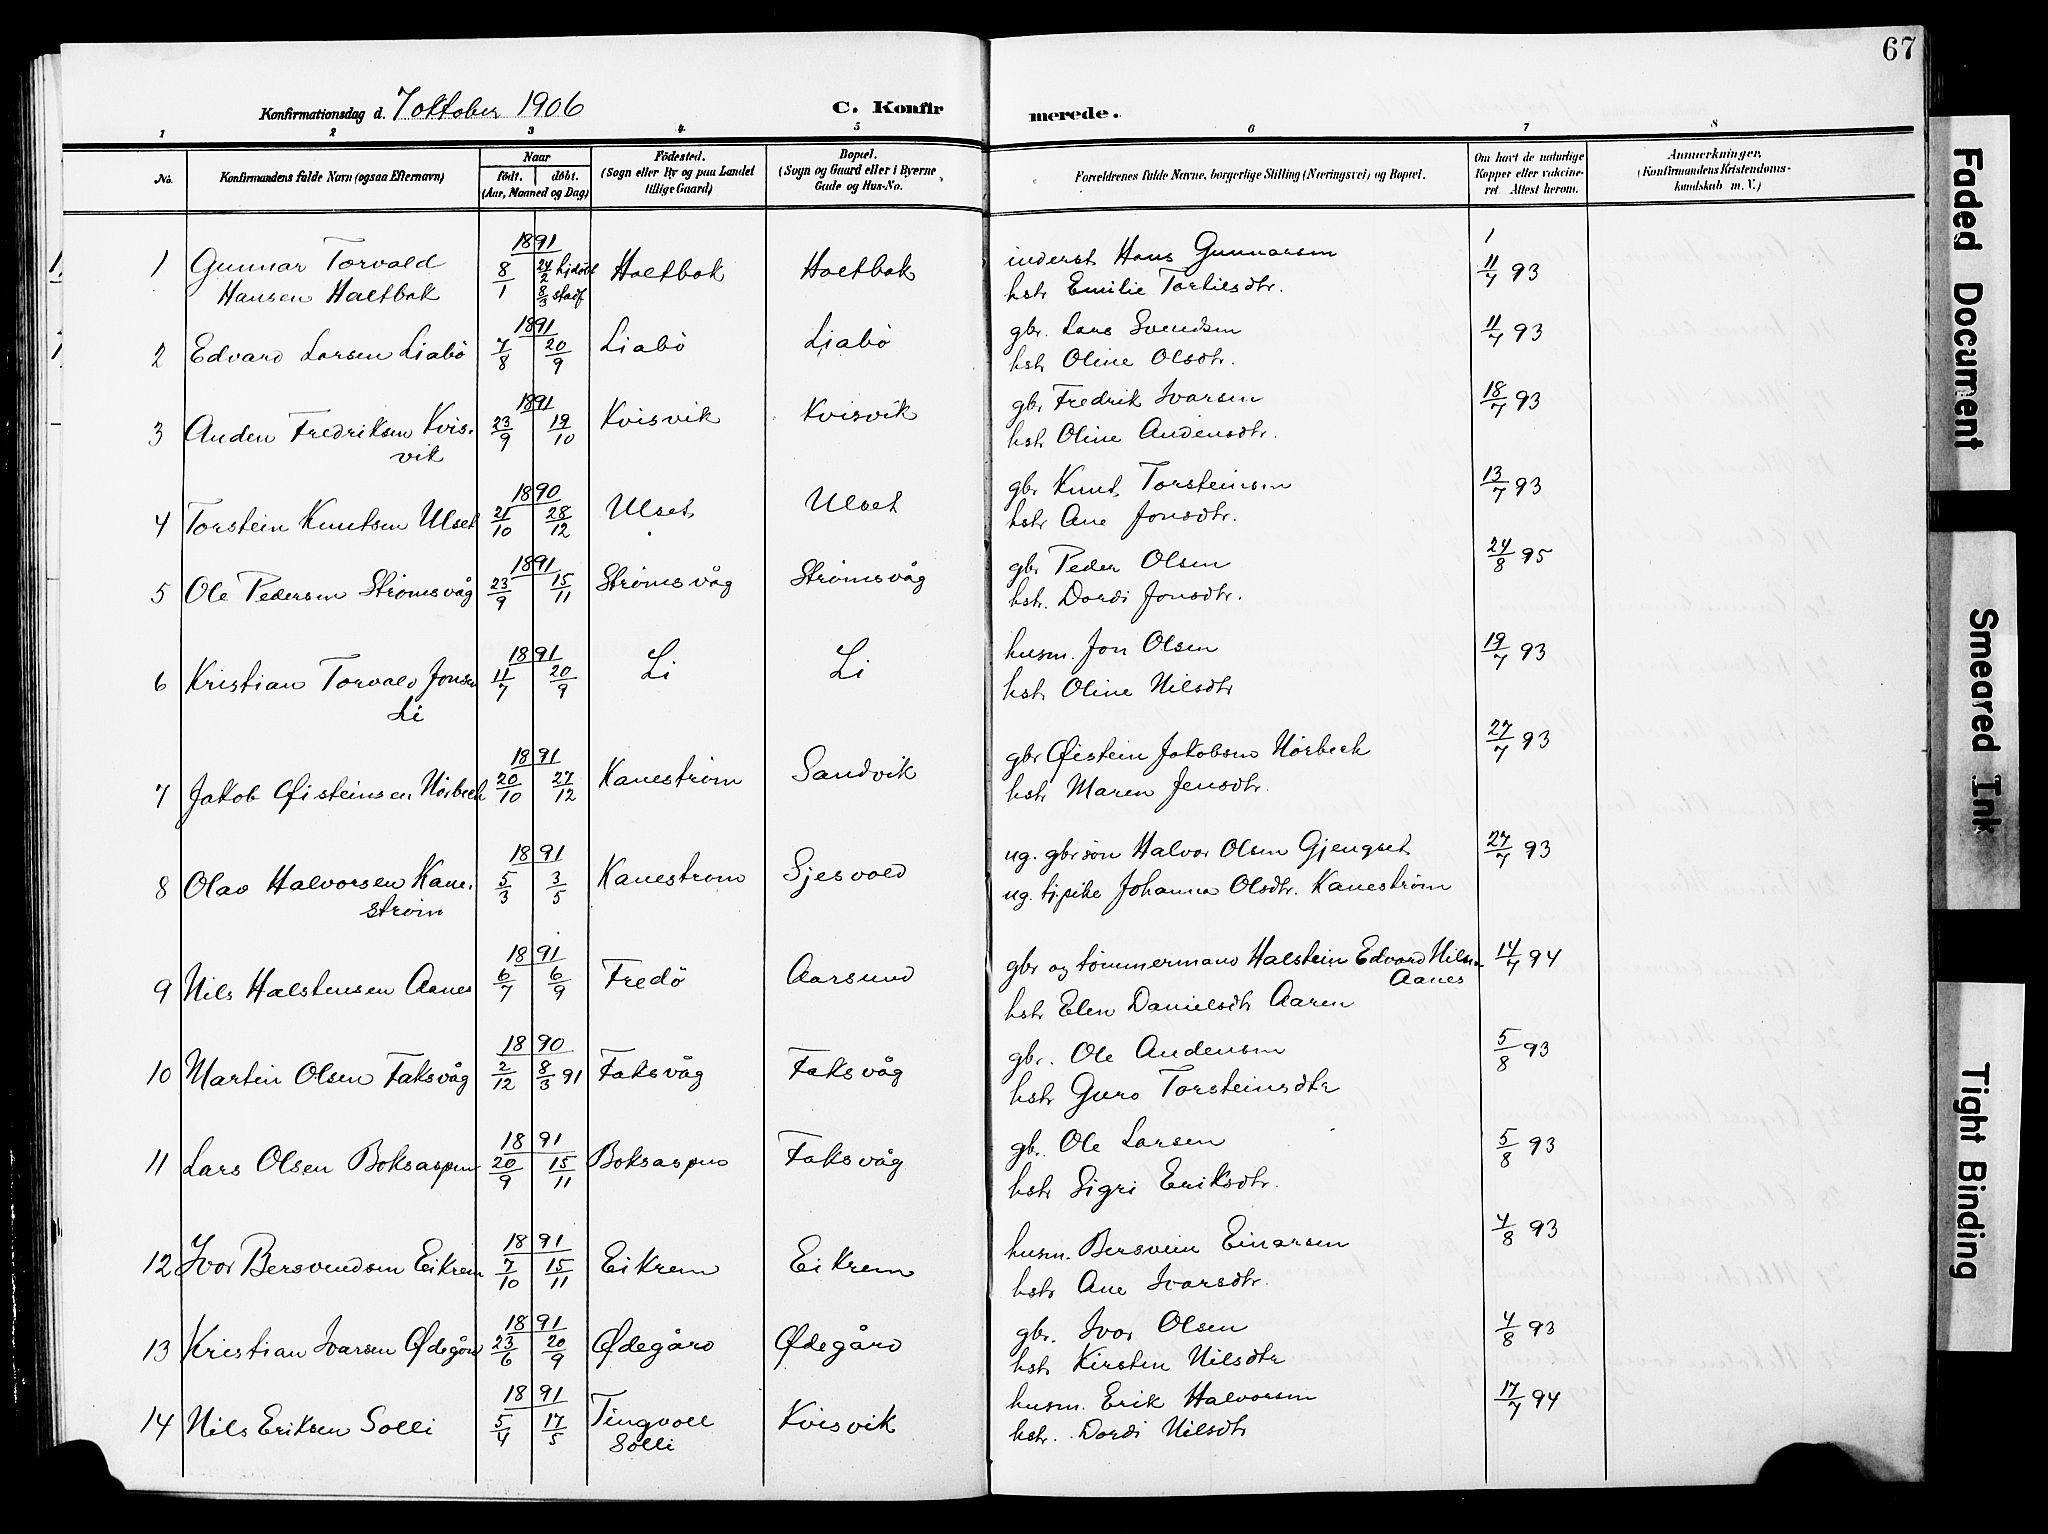 67
Konfirmationsdag d. 7 oktober 1906 C. Konfirmerede.
1 2 3 4. 5 6 7 8
No. Konfirmandens fulde Navn (ogsaa Efternavn) Naar født. døbt. (Aar, Maaned og Dag) Födested. (Sogn eller By og paa Landet tillige Gaard) Bopæl. (Sogn og Gaard eller i Byerne Gade og Hus-No. Forældrenes fulde Navne, borgerlige Stilling (Næringsvei) og Bopæl. Om havt de naturlige Kopper eller vakcineret Attest herom. Anmerkninger. (Konfirmandens Kristendomskundskab m. V.)
1 Gunnar Torvald Hansen Holtbak 1891 8/1 24/2 hjdöbt 8/3 stadf Holtbak Holtbak inderst Hans Gunnarsen 11/7 93
hstr Emilie Torkilsdtr.
2 Edvard Larsen Liabö 1891 7/8 20/9 Liabö Liabö gbr. Lars Svendsen 11/7 93
hstr Oline Olsdtr.
3 Anden Fredriksen Kvisvik 1891 23/9 19/10 Kvisvik Kvisvik gbr Fredrik Ivarsen 18/7 93
hstr Oline Andensdtr.
4 Torstein Knutsen Ulset 1890 21/10 28/12 Ulset Ulset gbr Knut Torsteinsen 13/7 93
hstr Ane Jonsdtr.
5 Ole Pedersen Strömsvåg 1891 23/9 15/11 Strömsvåg Strömsvåg gbr Peder Olsen 24/8 95
hstr. Dordi Jonsdtr.
6 Kristian Torvald Jonsen Li 1891 11/7 20/9 Li Li husm. Jon Olsen 19/7 93
hstr Oline Nilsdtr
7 Jakob Øisteinsen Nörbech 1891 20/10 27/12 Kaneström Sandvik gbr Øistein Jakobsen Nörbech 27/7 93
hstr Maren Jensdtr.
8 Olav Halvorsen Kaneström 1891 5/3 3/5 Kaneström Sjesvold ug. gbrsön Halvor Olsen Gjengset 27/7 93
ug. tj.pike Johanna Olsdtr. Kaneström
9 Nils Halstensen Aanes 1891 6/7 6/9 Fredö Aarsund gbr og tömmermand Halstein Edvard Nilsen Aanes 14/7 94
hstr Elen Danielsdtr Aaren
10 Martin Olsen Faksvåg 1890 2/12 8/3 91 Faksvåg Faksvåg gbr. Ole Andensen 5/8 93
hstr Guro Torsteinsdtr
11 Lars Olsen Boksaspen 1891 20/9 15/11 Boksaspen Faksvåg gbr. Ole Larsen 5/8 93
hstr Sigri Eriksdtr.
12 Ivar Bersvendsen Eikrem 1891 7/10 15/11 Eikrem Eikrem husm. Bersvein Einarsen 4/8 93
hstr Ane Ivarsdtr.
13 Kristian Ivarsen Ødegård 1891 23/6 20/9 Ødegård Ødegård gbr. Ivar Olsen 4/8 93
hstr Kirsten Nilsdtr
14 Nils Eriksen Solli 1891 5/4 17/5 Tingvoll Solli Kvisvik husm. Erik Halvorsen 17/7 94
hstr. Dordi Nilsdtr
Faded Document
Smeared Ink
Tight Binding